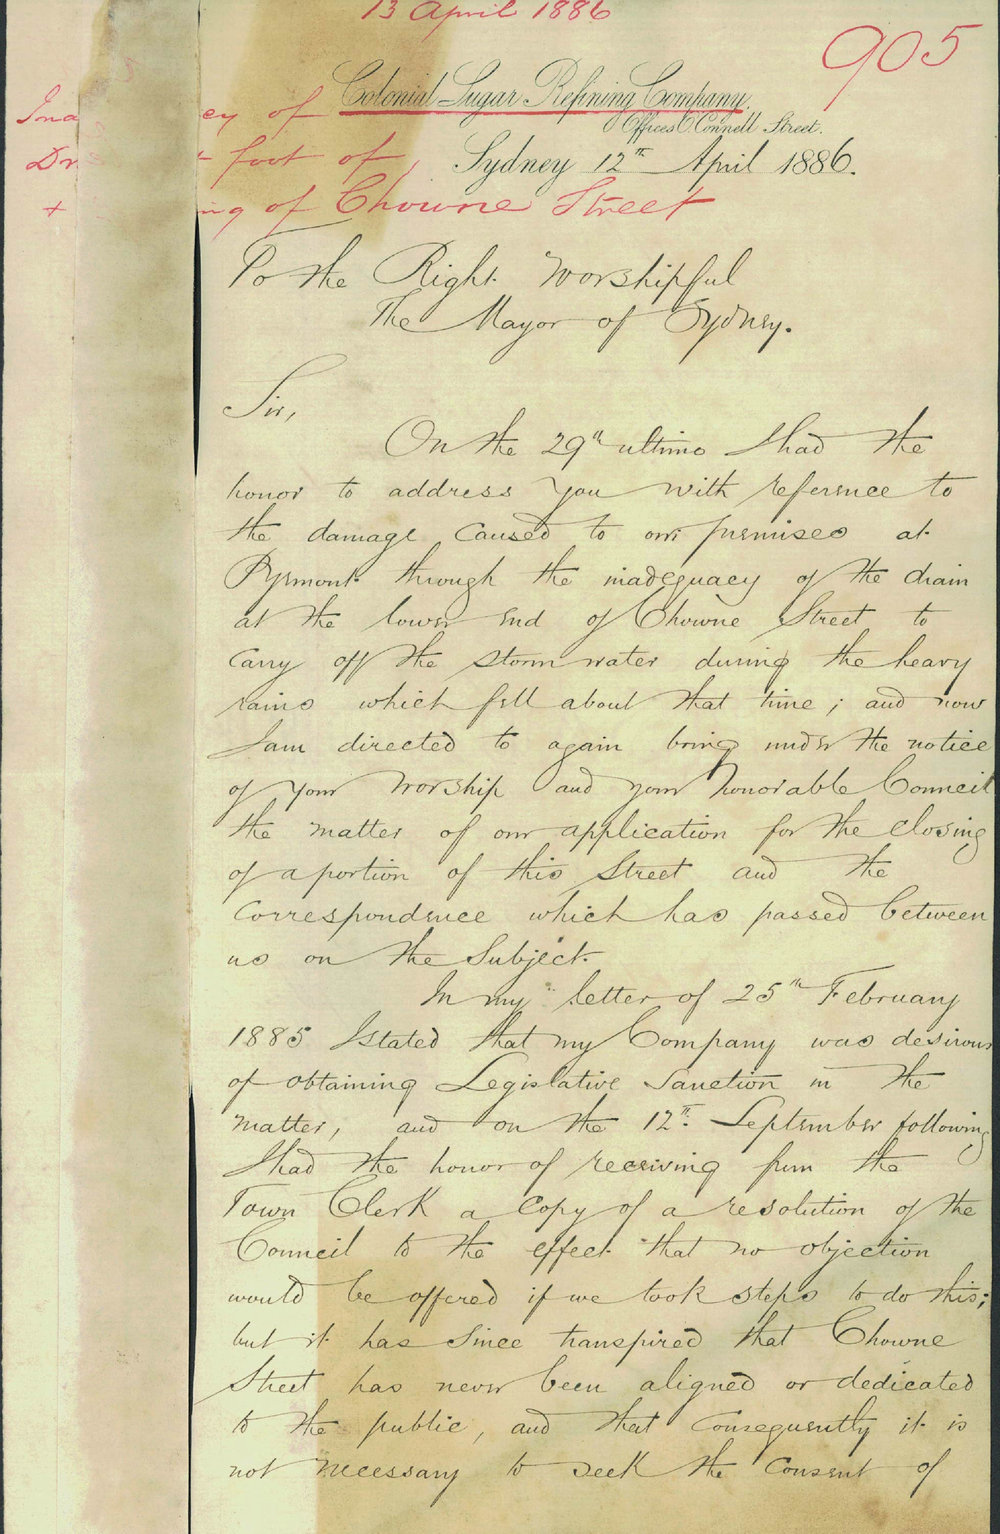 13 April 1886
905
Ina cy of
Colonial Sugar Refining Company.
Offices O'Connell Street.
Dr t foot of,
Sydney 12th April 1886.
+ ng of Chowne Street
To the Right Worshipful
The Mayor of Sydney.
Sir,
On the 29th ultimo I had the
honor to address you with reference to
the damage caused to our premises at
Pyrmont through the inadequacy of the drain
at the lower end of Chowne Street to
carry off the storm water during the heavy
rains which fell about that time; and now
I am directed to again bring under the notice
of your Worship and your honorable Council
the matter of our application for the closing
of a portion of this Street and the
correspondence which has passed between
us on the subject.
In my letter of 25th February
1885 I stated that my Company was desirous
of obtaining Legislative Sanction in the
matter, and on the 12th September following
I had the honor of receiving from the
Town Clerk a copy of a resolution of the
Council to the effect that no objection
would be offered if we took steps to do this;
but it has since transpired that Chowne
Street has never been aligned or dedicated
to the public, and that consequently it is
not necessary to seek the consent of